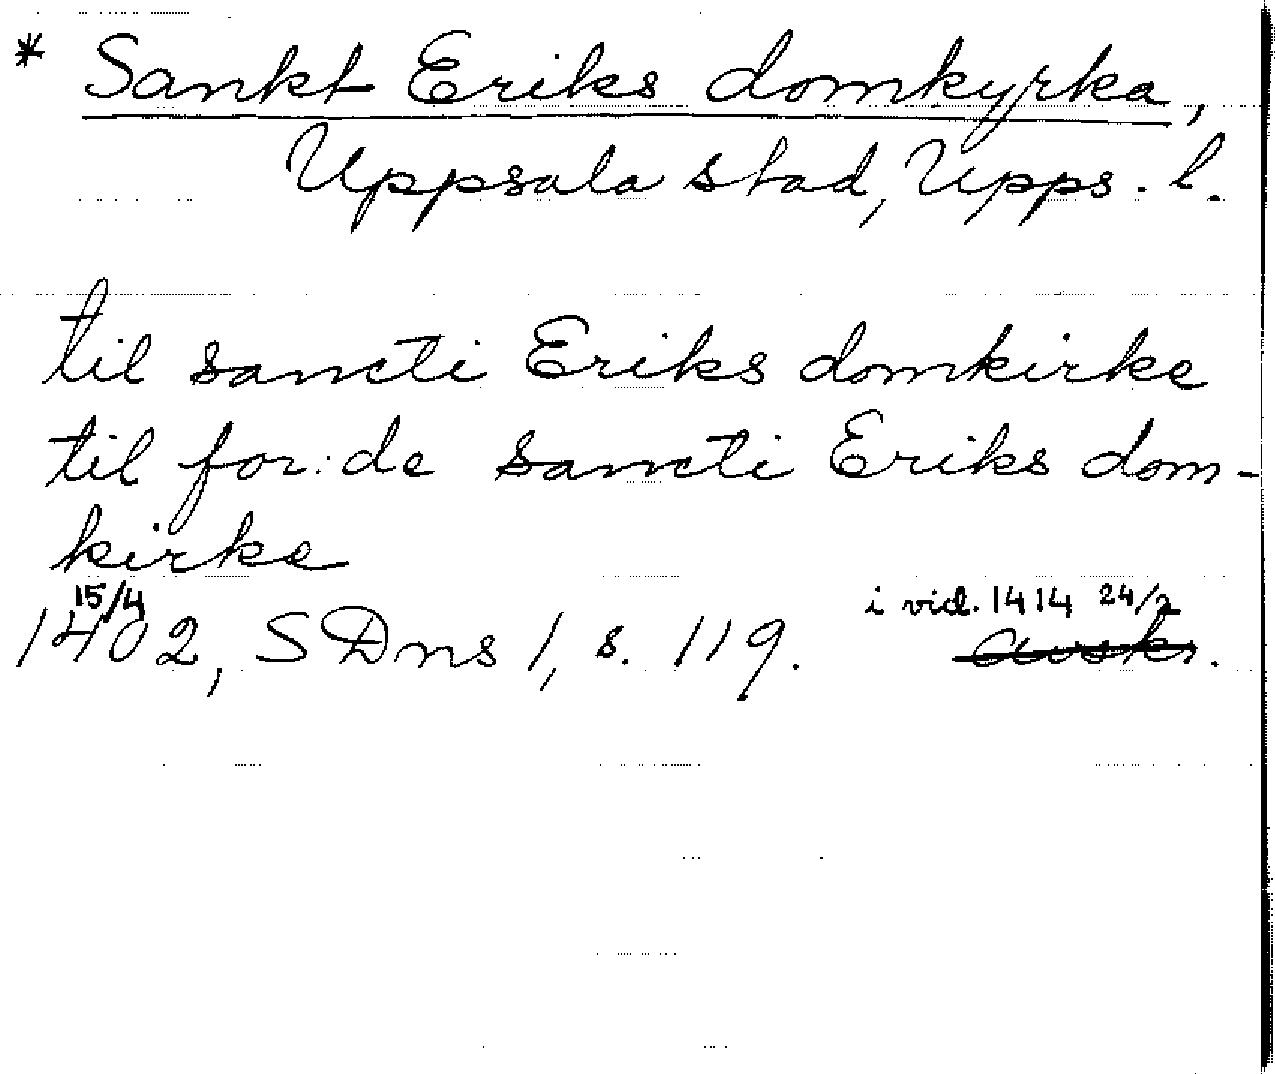 * Sankt Eriks domkyrka,
Uppsala stad, Upps. l.
til sancti Eriks domkirke
til for: de sancti Eriks dom-
kirke
15/4 i vid. 1414 24/2
1402, SDns 1, s. 119. avskr.